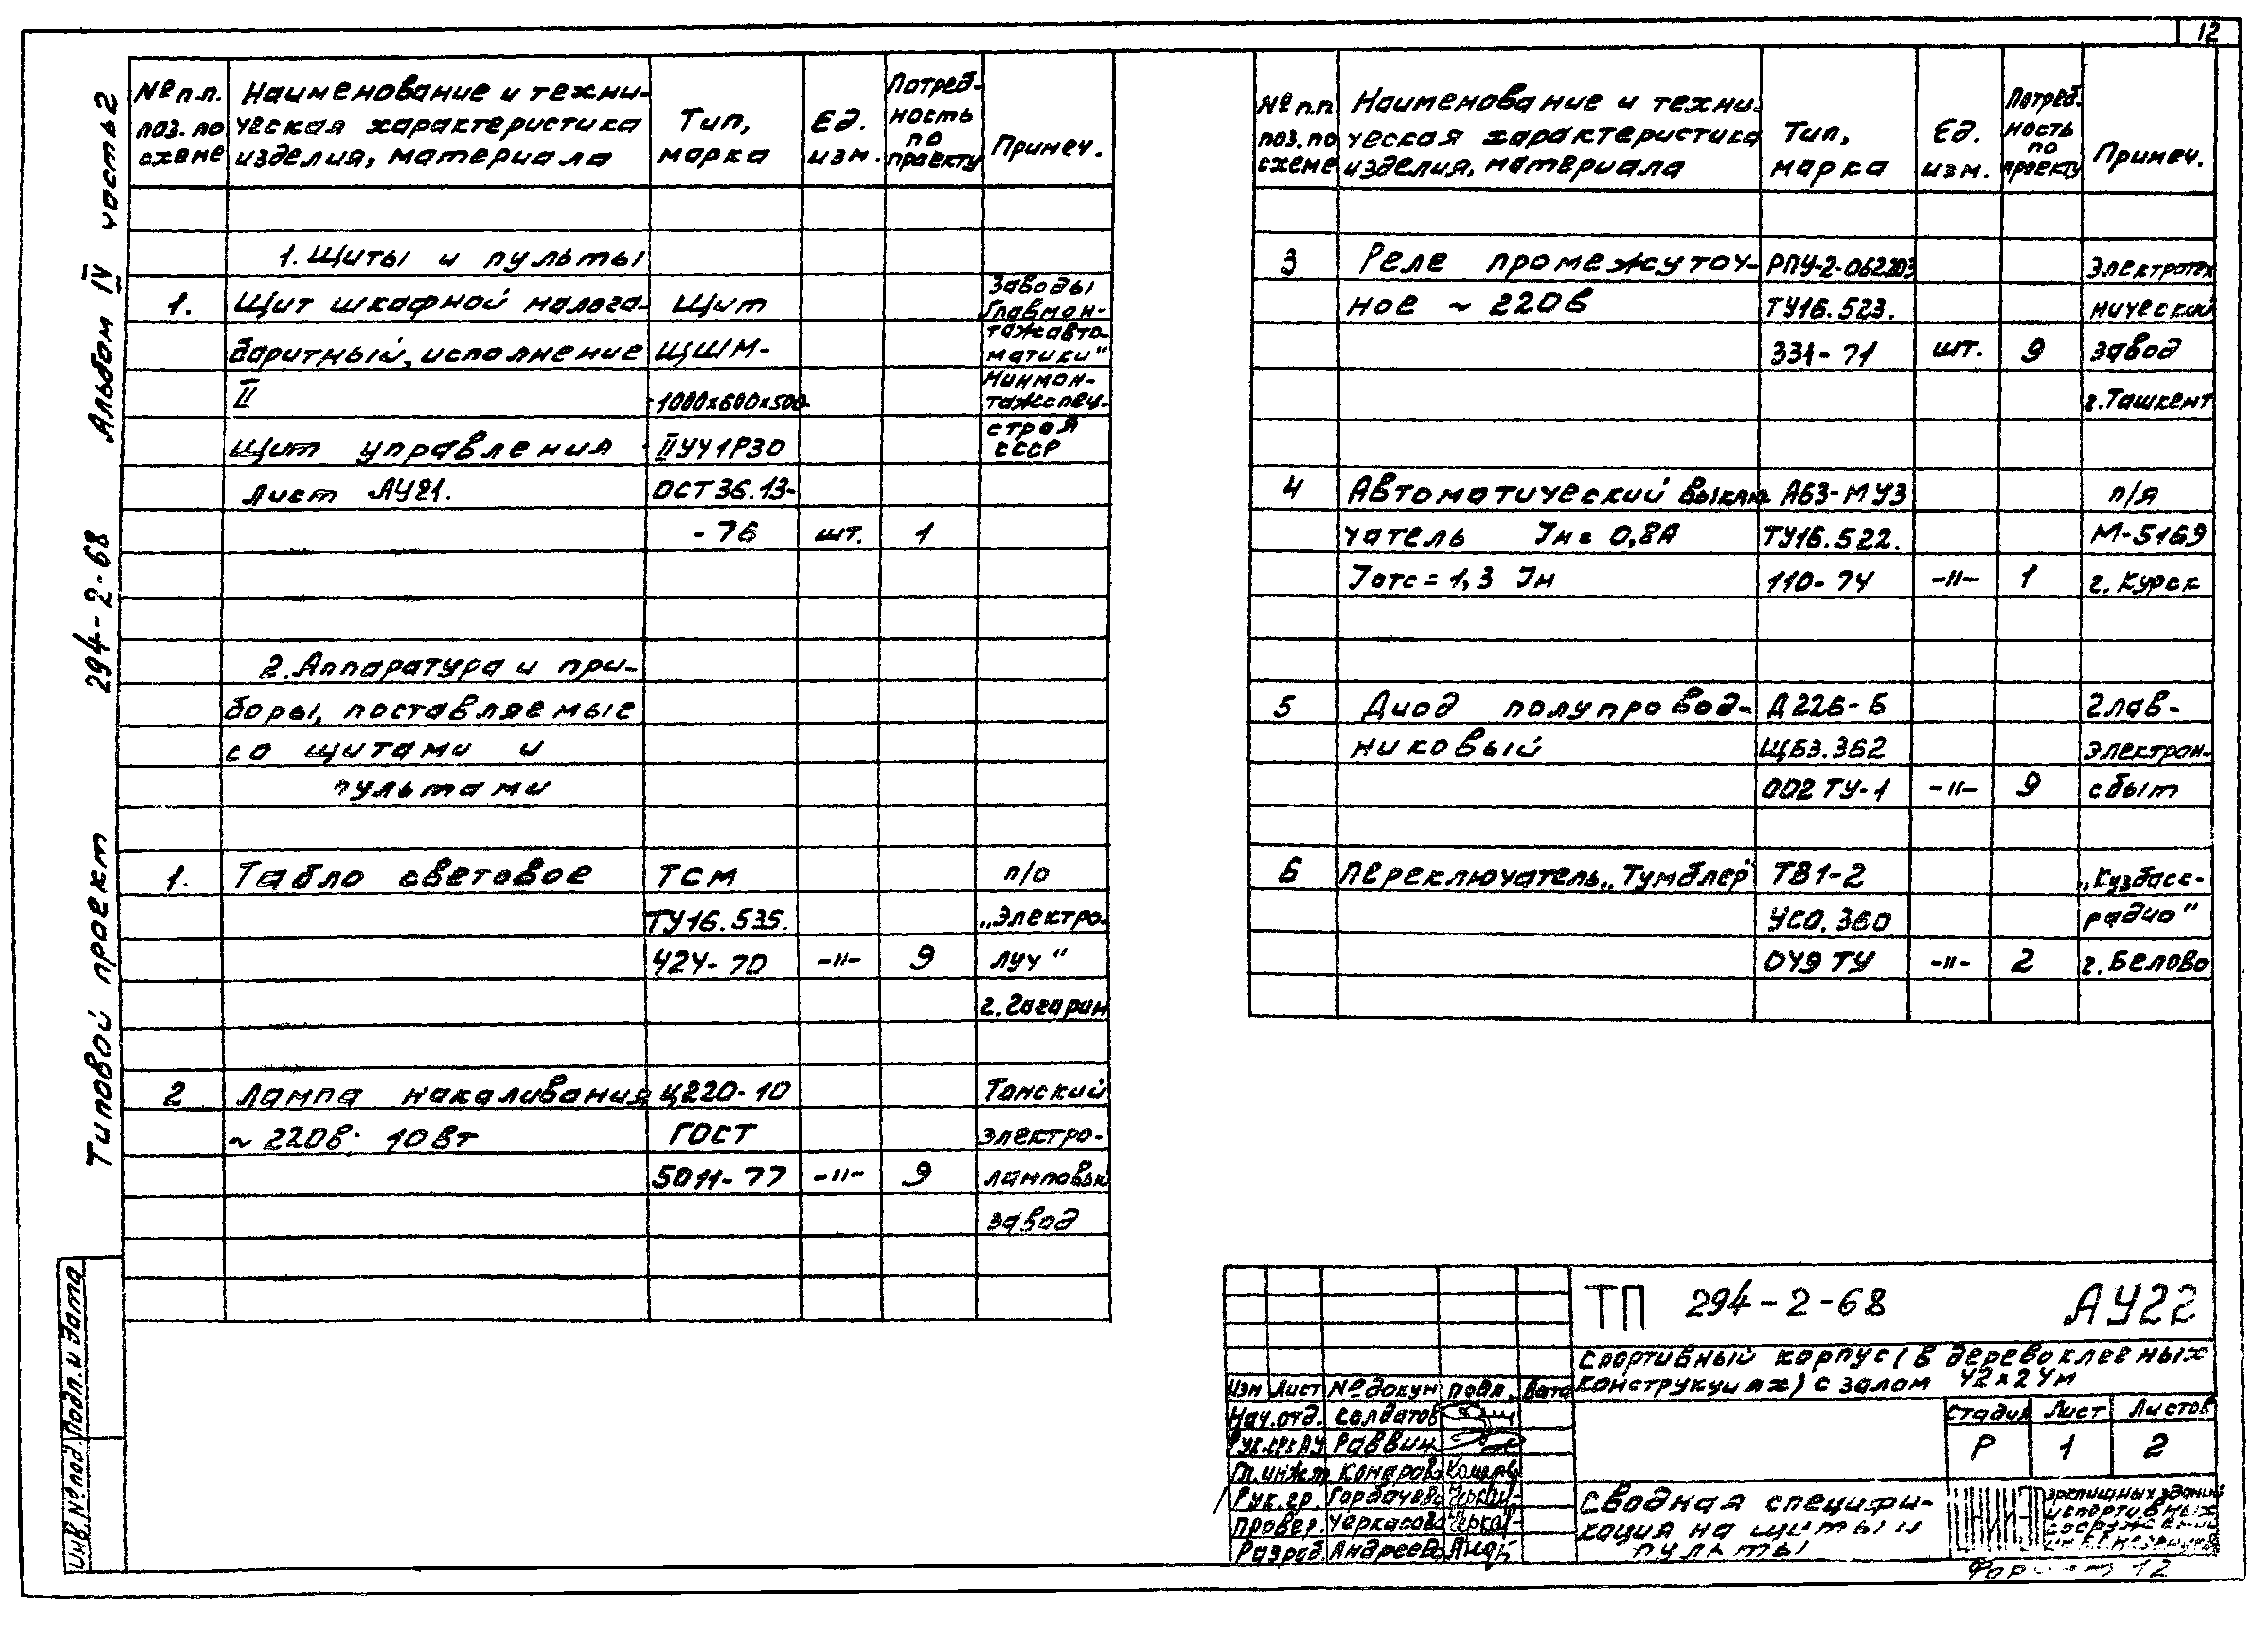 12
Типовой проект 294-2-68 Альбом IV часть 2
Инв.№подл. Подп. и дата
№ п.п. поз. по схеме
Наименование и техни-
ческая характеристика
изделия, материала
Тип,
марка
Ед.
изм.
Потреб-
ность
по
проекту
Примеч.
1. Щиты и пульты
1. Щит шкафной малога- Щит
баритный, исполнение ЩШМ-
II -1000х600х500-
Щит управления IIУЧ1Р30
Лист АУ21. ОСТ36.13-
-76 шт. 1
Заводы
Главмон-
тажавто-
матики"
Минмон-
тажспец-
строя
СССР
2. Аппаратура и при-
боры, поставляемые
со щитами и
пультами
1. Табло световое ТСМ п/о
ТУ16.535. „Электро-
424-70 -"- 9 луч"
г. Гагарин
2 Лампа накаливания Ц220-10 Томский
~ 220в; 10вт ГОСТ электро-
5011-77 -"- 9 ламповый
завод
№ п.п. поз. по схеме
Наименование и техни-
ческая характеристика
изделия, материала
Тип,
марка
Ед.
изм.
Потреб-
ность
по
проекту
Примеч.
3 Реле промежуточ- РПУ-2-062203 Электротех
ное ~ 220в ТУ16.523. нический
331-71 шт. 9 завод
г.Ташкент
4 Автоматический выклю- А63-МУ3 п/я
чатель Jн = 0,8А ТУ16.522. М-5169
Jотс = 1,3 Jн 110-74 -"- 1 г. Курск
5 Диод полупровод- Д226-Б Глав-
никовый ЩБ3.362 электрон-
002 ТУ-1 -"- 9 сбыт
6 Переключатель „Тумблер" ТВ1-2 „Кузбасс-
УСО.360 радио"
049 ТУ -"- 2 г. Белово
ТП 294-2-68 АУ22
Спортивный корпус (в деревоклееных
конструкциях) с залом 42х24м
Изм Лист № докум подп. Дата
Нач.отд. Солдатов
Рук.сек АУ Раввин
Гл.инж.п Комарова
Рук.гр. Горбачева
Провер. Черкасова
Разраб. Андреева
Стадия Лист Листов
Р 1 2
Сводная специфи-
кация на щиты и
пульты
зрелищных зданий
и спортивных
Формат 12